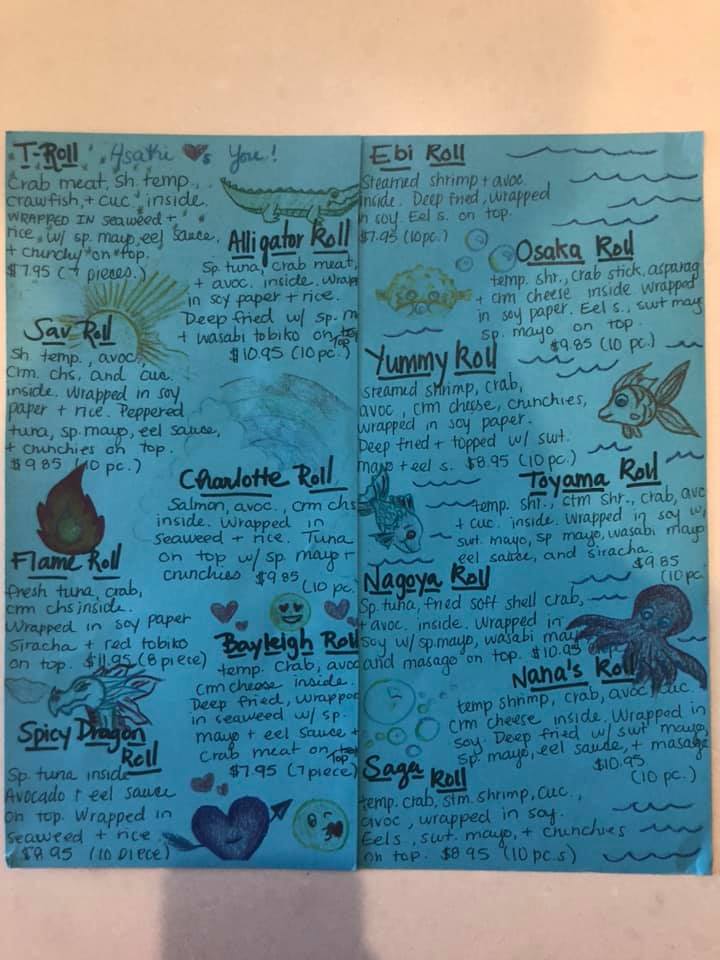 T-Roll Asahi ♥s You!
Crab meat, Sh. temp.,
crawfish, + cuc inside.
WRAPPED IN seaweed +
rice w/ sp. mayo, eel sauce,
+ crunchy on top.
$7.95 (7 pieces.)
Alligator Roll
Sp. tuna, crab meat,
+ avoc. inside. Wrap
in soy paper + rice.
Deep fried w/ sp. m
+ wasabi tobiko on top
$10.95 (10 pc.)
Sav Roll
Sh. temp., avoc.,
Crm. chs, and cuc.
inside. Wrapped in soy
paper + rice. Peppered
tuna, sp. mayo, eel sauce,
+ crunchies on top.
$9.85 (10 pc.)
Charlotte Roll
Salmon, avoc., crm chs
inside. Wrapped in
seaweed + rice. Tuna
on top w/ sp. mayo +
crunchies $9.85
(10 pc.)
Flame Roll
fresh tuna, crab,
crm chs inside.
Wrapped in soy paper
Siracha + red tobiko
on top. $11.95 (8 piece)
Bayleigh Roll
temp. Crab, avoc
crm cheese inside.
Deep fried, wrapped
in seaweed w/ sp.
mayo + eel sauce +
Crab meat on top
$7.95 (7 piece)
Spicy Dragon
Roll
Sp. tuna inside
Avocado + eel sauce
on top. Wrapped in
seaweed + rice
$8.95 (10 piece)
Ebi Roll
Steamed shrimp + avoc.
inside. Deep fried, wrapped
in soy. Eel s. on top.
$7.95 (10pc.)
Osaka Roll
temp. shr., crab stick, asparag
+ crm cheese inside wrapped
in soy paper. Eel s., swt may
sp. mayo on top.
$9.85 (10 pc.)
Yummy Roll
Steamed shrimp, crab,
avoc, crm cheese, crunchies,
wrapped in soy paper.
Deep fried + topped w/ swt.
mayo + eel s. $8.95 (10 pc.)
Toyama Roll
temp. shr., stm shr., crab, avc
+ cuc. inside. Wrapped in soy w,
swt. mayo, sp mayo, wasabi mayo
eel sauce, and siracha.
$9.85
(10 pc
Nagoya Roll
Sp. tuna, fried soft shell crab,
+ avoc. inside. Wrapped in
soy w/ sp. mayo, wasabi mayo
and masago on top. $10.95
Nana's Roll
temp shrimp, crab, avoc, cuc.
crm cheese inside. Wrapped in
soy. Deep fried w/ swt mayo,
sp. mayo, eel sauce, + masago
$10.95
(10 pc.)
Saga Roll
temp. crab, stm. shrimp, cuc.,
avoc, wrapped in soy.
Eel s, swt. mayo, + crunchies
on top. $8.95 (10 pc.s)